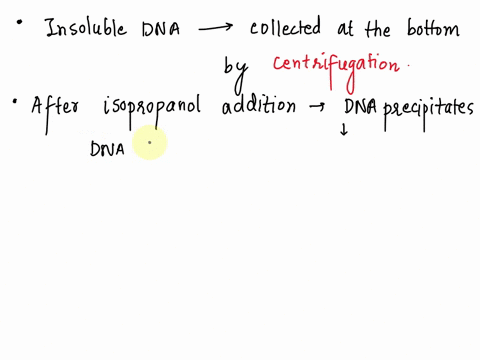 • Insoluble DNA → collected at the bottom
by centrifugation.
• After isopropanol addition → DNA precipitates
↓
DNA